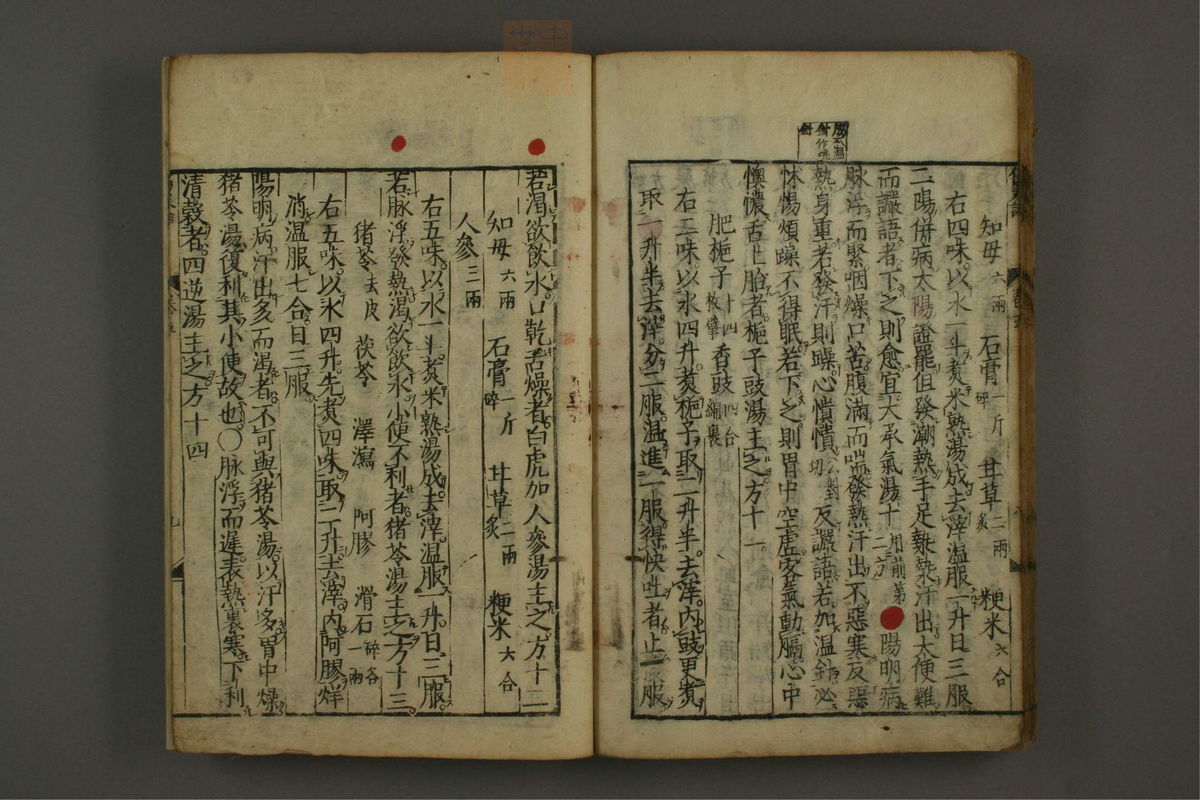 知母六兩　石膏一斤碎　甘草二兩炙　粳米六合
右四味以水一斗煮米熟湯成去滓溫服一升日三服
二陽併病太陽證罷但發潮熱手足漐漐汗出大便難
而讝語者下之則愈宜大承氣湯十二用前第二方陽明病
脉浮而緊咽燥口苦腹滿而喘發熱汗出不惡寒反惡
熱身重若發汗則躁心憒憒公對切反讝語若加温針必
怵惕煩躁不得眠若下之則胃中空虛客氣動膈心中
懊憹舌上胎者梔子豉湯主之方十一
肥梔子十四枚擘　香豉四合綿裹
右二味以水四升煮梔子取二升半去滓内豉更煮
取一升半去滓分二服温進一服得快吐者止一服
若渴欲飲水口乾舌燥者白虎加人參湯主之方十二
知母六兩　石膏一斤碎　甘草二兩炙　粳米六合
人參三兩
右五味以水一斗煮米熟湯成去滓温服一升日三服
若脉浮發熱渴欲飲水小便不利者猪苓湯主之方十三
猪苓去皮　茯苓　澤瀉　阿膠　滑石碎各一兩
右五味以水四升先煮四味取二升去滓内阿膠烊
消温服七合日三服
陽明病汗出多而渴者不可與猪苓湯以汗多胃中燥
猪苓湯復利其小便故也○脉浮而遲表熱裏寒下利
清穀者四逆湯主之方十四